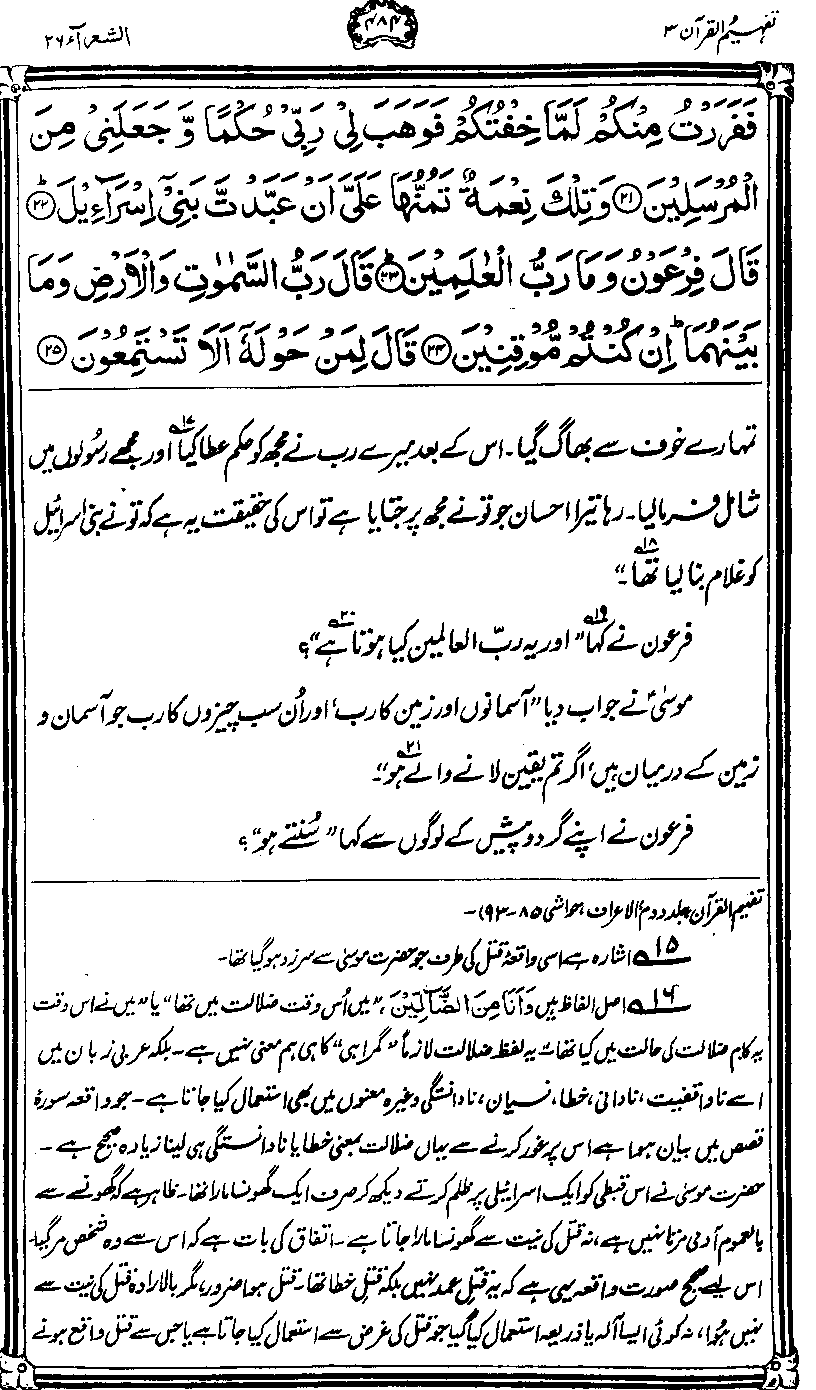 تفہیم القرآن ۳
۴۸۴
الشعرآء ۲۶
فَفَرَرْتُ مِنْكُمْ لَمَّا خِفْتُكُمْ فَوَهَبَ لِیْ رَبِّیْ حُكْمًا وَّ جَعَلَنِیْ مِنَ
الْمُرْسَلِیْنَ ﴿۲۱﴾ وَتِلْكَ نِعْمَةٌ تَمُنُّهَا عَلَیَّ اَنْ عَبَّدْتَّ بَنِیْۤ اِسْرَآءِیْلَ ﴿۲۲﴾
قَالَ فِرْعَوْنُ وَمَا رَبُّ الْعٰلَمِیْنَ ﴿۲۳﴾ قَالَ رَبُّ السَّمٰوٰتِ وَالْاَرْضِ وَمَا
بَیْنَهُمَا ؕ اِنْ كُنْتُمْ مُّوْقِنِیْنَ ﴿۲۴﴾ قَالَ لِمَنْ حَوْلَهٗۤ اَلَا تَسْتَمِعُوْنَ ﴿۲۵﴾
تمہارے خوف سے بھاگ گیا۔ اس کے بعد میرے رب نے مجھ کو حکم عطا کیا۱۷ اور مجھے رسُولوں میں
شامل فرمالیا۔ رہا تیرا احسان جو تونے مجھ پر جتایا ہے تو اس کی حقیقت یہ ہے کہ تونے بنی اسرائیل
کو غلام بنالیا تھا۱۸۔“
فرعون نے کہا۱۹ ”اور یہ ربّ العالمین کیا ہوتا ہے۲۰“؟
موسیٰؑ نے جواب دیا ”آسمانوں اور زمین کا رب، اور اُن سب چیزوں کا رب جو آسمان و
زمین کے درمیان ہیں، اگر تم یقین لانے والے ہو۲۱“۔
فرعون نے اپنے گرد و پیش کے لوگوں سے کہا ”سُنتے ہو“؟
تفہیم القرآن جلد دوم، الاعراف، حواشی ۸۵-۹۳)۔
۱۵ اشارہ ہے اسی واقعۂ قتل کی طرف جو حضرت موسیٰ سے سرزد ہوگیا تھا۔
۱۶ اصل الفاظ ہیں وَاَنَا مِنَ الضَّآلِّیْنَ، ”میں اُس وقت ضلالت میں تھا“ یا ”میں نے اس وقت
یہ کام ضلالت کی حالت میں کیا تھا“۔ یہ لفظ ضلالت لازماً ”گمراہی“ کا ہی ہم معنی نہیں ہے۔ بلکہ عربی زبان میں
اسے ناواقفیت، نادانی، خطا، نسیان، نادانستگی وغیرہ معنوں میں بھی استعمال کیا جاتا ہے۔ جو واقعہ سورۂ
قصص میں بیان ہوا ہے اس پر غور کرنے سے یہاں ضلالت بمعنی خطا یا نادانستگی ہی لینا زیادہ صحیح ہے۔
حضرت موسیٰ نے اس قبطی کو ایک اسرائیلی پر ظلم کرتے دیکھ کر صرف ایک گھونسا مارا تھا۔ ظاہر ہے کہ گھونسے سے
بالعموم آدمی مرتا نہیں ہے، نہ قتل کی نیت سے گھونسا مارا جاتا ہے۔ اتفاق کی بات ہے کہ اس سے وہ شخص مرگیا۔
اس لیے صحیح صورت واقعہ یہی ہے کہ یہ قتل عمد نہیں بلکہ قتل خطا تھا۔ قتل ہوا ضرور، مگر بالارادہ قتل کی نیت سے
نہیں ہُوا، نہ کوئی ایسا آلہ یا ذریعہ استعمال کیا گیا جو قتل کی غرض سے استعمال کیا جاتا ہے یا جس سے قتل واقع ہونے